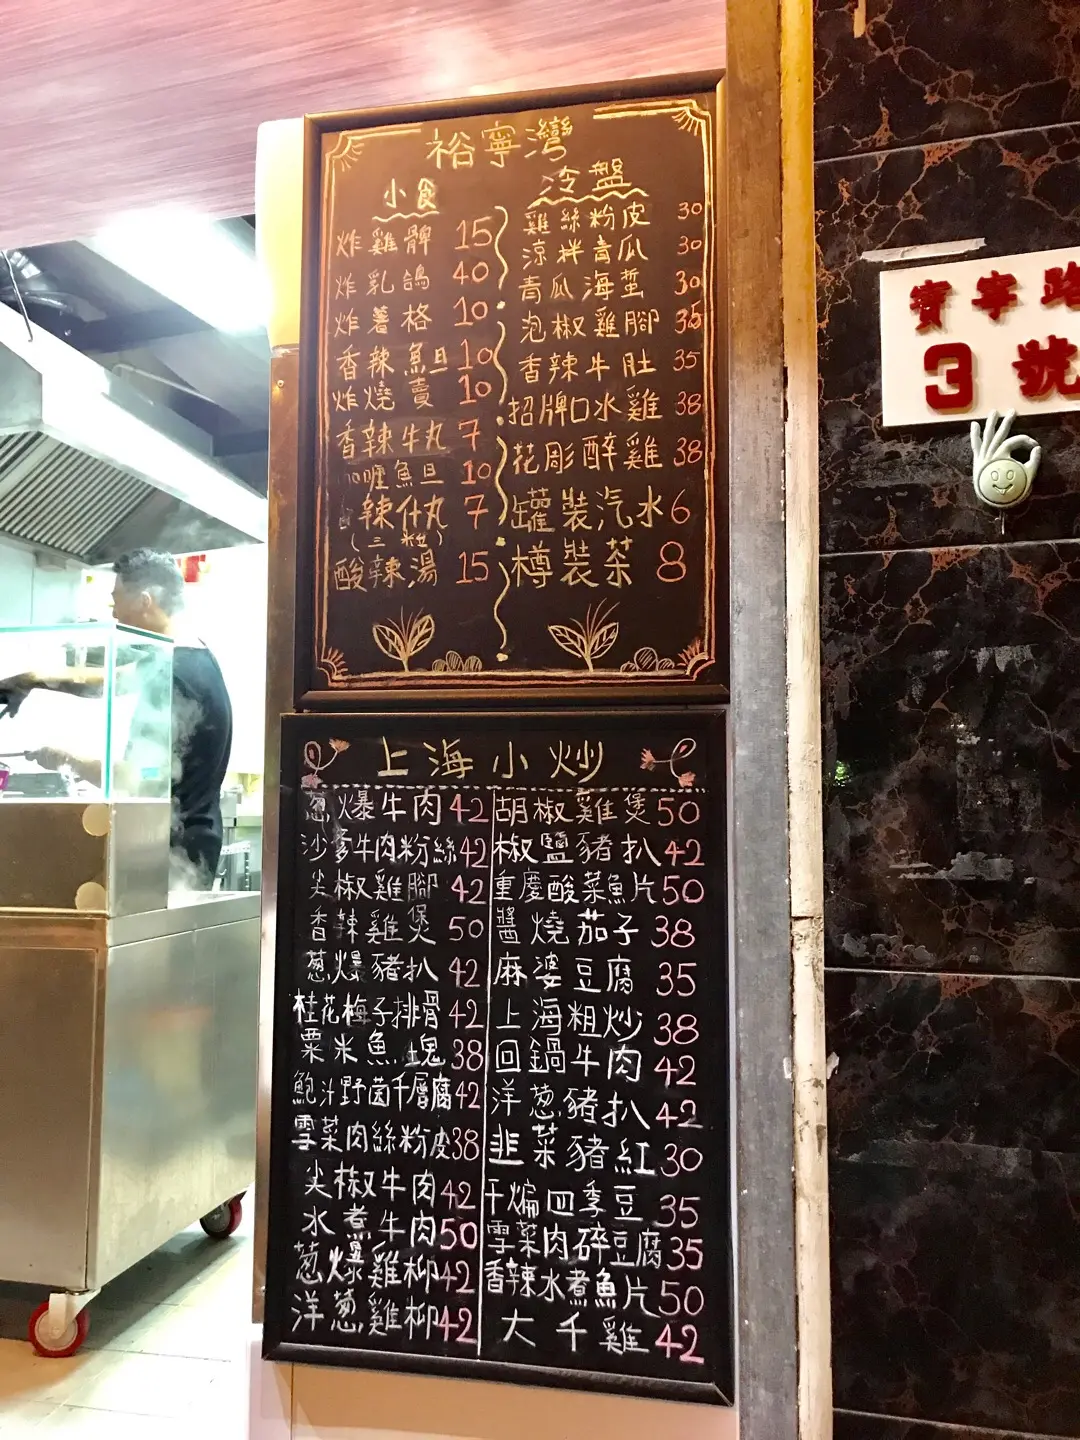 裕寧灣
小食
炸雞髀 15
炸乳鴿 40
炸薯格 10
香辣魚旦 10
炸燒賣 10
香辣牛丸 7
咖喱魚旦 10
辣什丸 7
(三粒)
酸辣湯 15
冷盤
雞絲粉皮 30
涼拌青瓜 30
青瓜海蜇 30
泡椒雞腳 35
香辣牛肚 35
招牌口水雞 38
花彫醉雞 38
罐裝汽水 6
樽裝茶 8
寶寧路
3號
上海小炒
葱爆牛肉 42
沙爹牛肉粉絲 42
尖椒雞腳 42
香辣雞煲 50
葱爆豬扒 42
桂花梅子排骨 42
粟米魚塊 38
鮑汁野菌千層腐 42
雪菜肉絲粉皮 38
尖椒牛肉 42
水煮牛肉 50
葱爆雞柳 42
洋葱雞柳 42
胡椒雞煲 50
椒鹽豬扒 42
重慶酸菜魚片 50
醬燒茄子 38
麻婆豆腐 35
上海粗炒 38
回鍋牛肉 42
洋葱豬扒 42
韭菜豬紅 30
干煸四季豆 35
雪菜肉碎豆腐 35
香辣水煮魚片 50
大千雞 42